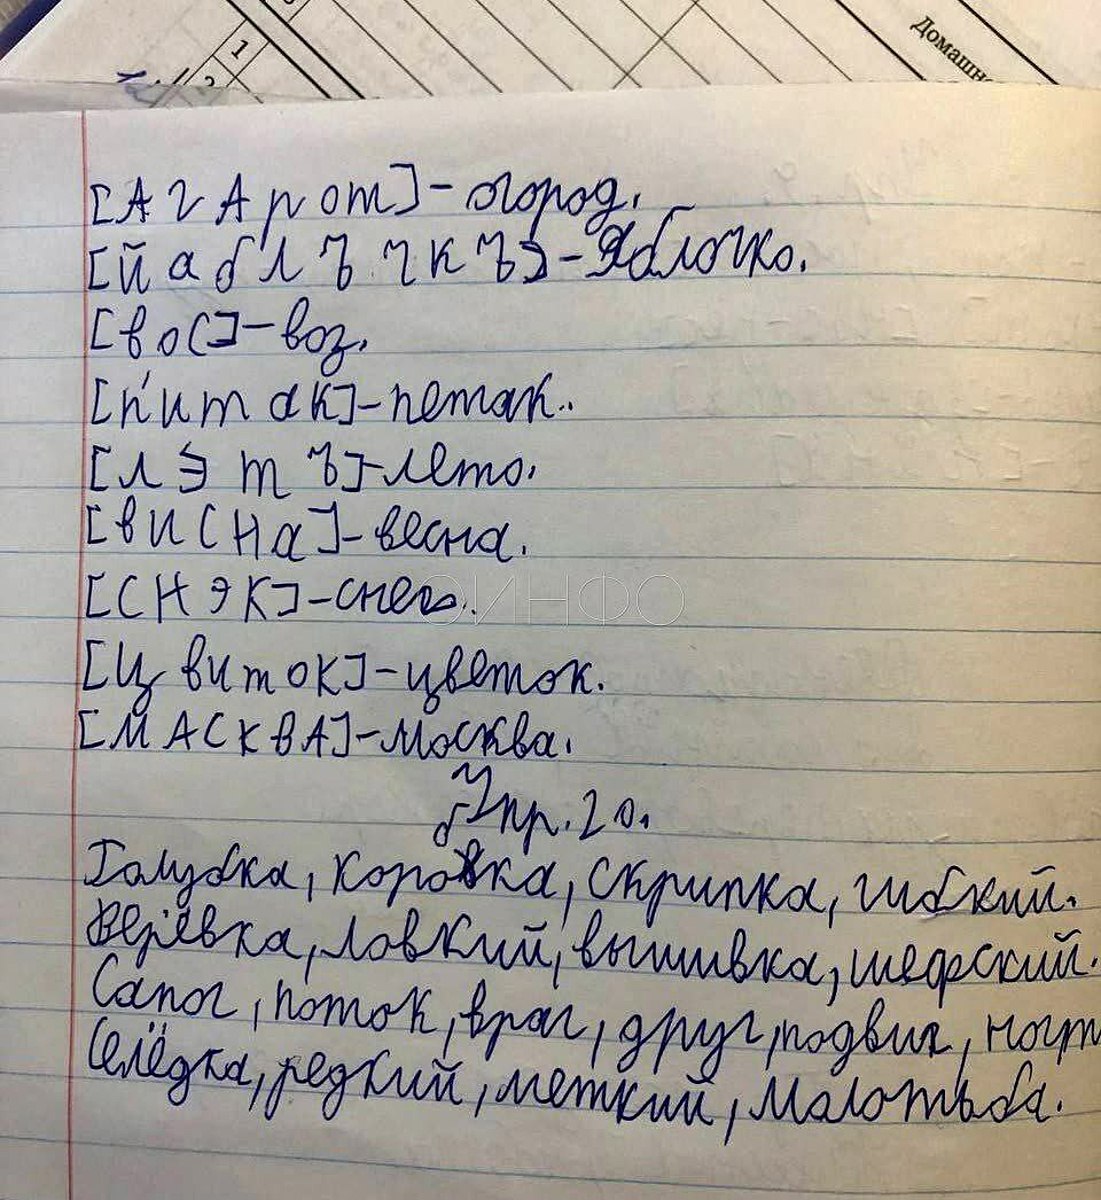 1
2
Домашн
[А г А р о т] - огород.
[й а б л ъ ч к ъ] - Яблочко.
[в о с] - воз.
[п' и т а к] - петак.
[л э т ъ] - лето.
[в и с н а] - весна.
[с н э к] - снег.
ОИНФО
[ц в и т о к] - цветок.
[М А С К В А] - Москва.
Упр. 20.
Голубка, коровка, скрипка, гибкий.
Верёвка, ловкий, вышивка, шефский.
Сапог, поток, враг, друг, подвиг, ногт
Селёдка, редкий, меткий, молотьба.